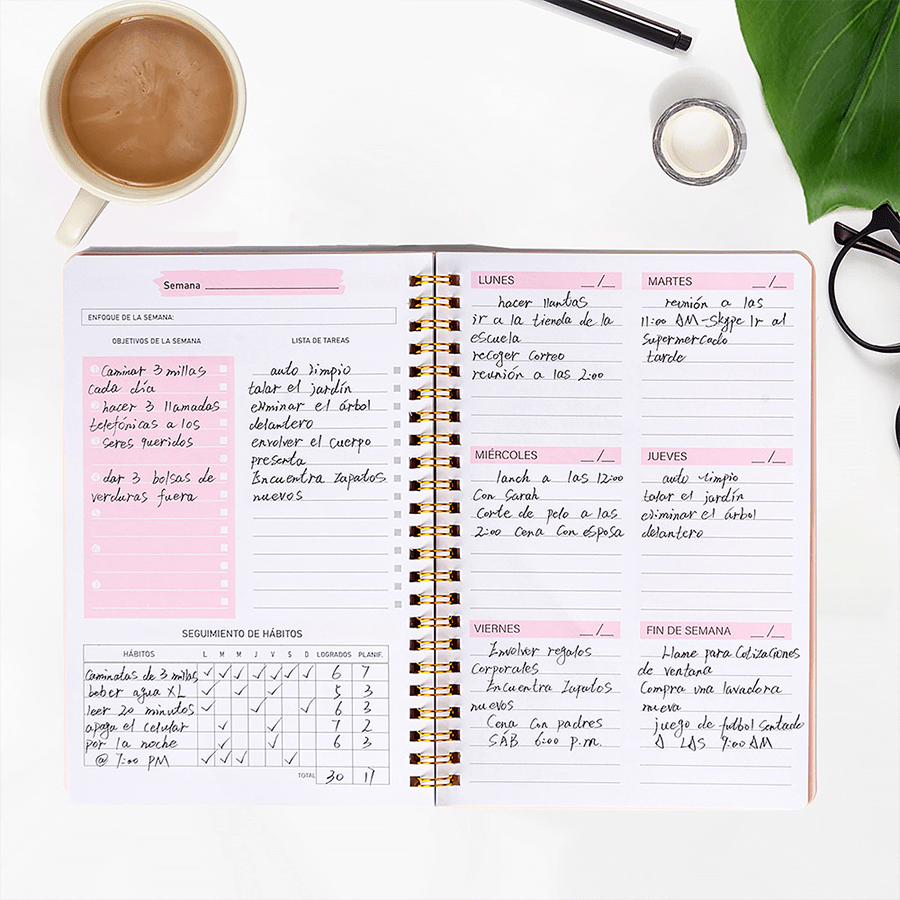 Semana
ENFOQUE DE LA SEMANA:
OBJETIVOS DE LA SEMANA
Caminar 3 millas
cada día
hacer 3 llamadas
telefónicas a los
seres queridos
dar 3 bolsas de
verduras fuera
LISTA DE TAREAS
auto limpio
talar el jardín
eliminar el árbol
delantero
envolver el cuerpo
presenta
Encuentra Zapatos
nuevos
SEGUIMIENTO DE HÁBITOS
HÁBITOS L M M J V S D LOGRADOS PLANIF.
Caminatas de 3 millas ✓ ✓ ✓ ✓ ✓ ✓ ✓ 6 7
bober agua XL ✓ ✓ ✓ 5 3
leer 20 minutos ✓ ✓ ✓ 6 3
apaga el celular ✓ ✓ 7 2
por la noche ✓ ✓ 6 3
@ 7:00 PM ✓ ✓ ✓ ✓
TOTAL 30 17
LUNES __/__
hacer llantas
ir a la tienda de la
escuela
recoger correo
reunión a las 2:00
MARTES __/__
reunión a las
11:00 AM-Skype Ir al
Supermercado
tarde
MIÉRCOLES __/__
lanch a las 12:00
Con Sarah
Corte de pelo a las
2:00 Cena Con esposa
JUEVES __/__
auto limpio
talar el jardín
eliminar el árbol
delantero
VIERNES __/__
Envolver regalos
Corporales
Encuentra Zapatos
nuevos
Cena Con padres
SAB 6:00 P.m.
FIN DE SEMANA __/__
Llame para Cotizaciones
de ventana
Compra una lavadora
nueva
juego de futbol Sentado
A LAS 9:00 AM